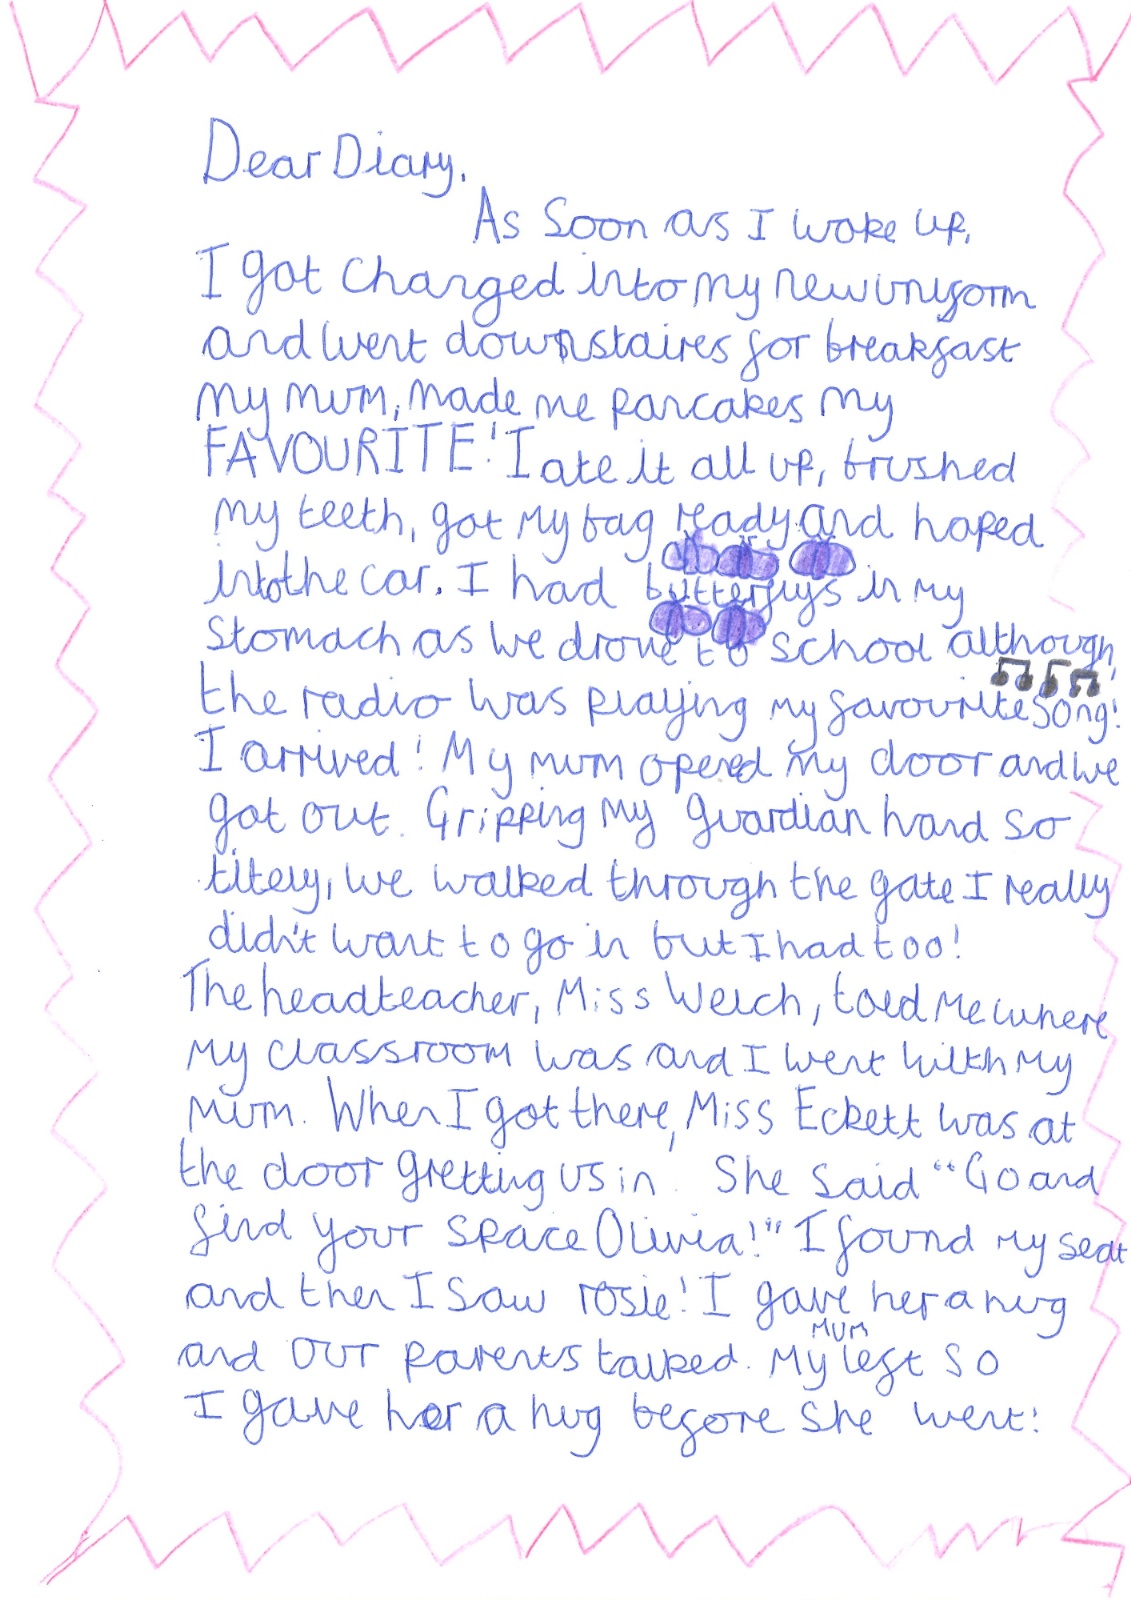 Dear Diary,
As Soon as I woke up,
I got changed into my new uniform
and went downstaires for breakfast
my mum, made me pancakes my
FAVOURITE! I ate it all up, brushed
my teeth, got my bag ready and hoped
into the car. I had butterflys in my
Stomach as we drove to school although,
the radio was playing my favourite song!
I arrived! My mum opened my door and we
got out. Gripping my guardian hand so
titely, we walked through the gate I really
didn't want to go in but I had too!
The headteacher, Miss Welch, toled me where
my classroom was and I went with my
mum. When I got there, Miss Eckett was at
the door gretting us in. She said "Go and
find your space Olivia!" I found my seat
and then I saw rosie! I gave her a hug
and our parents talked. My mum left so
I gave her a hug before she went!